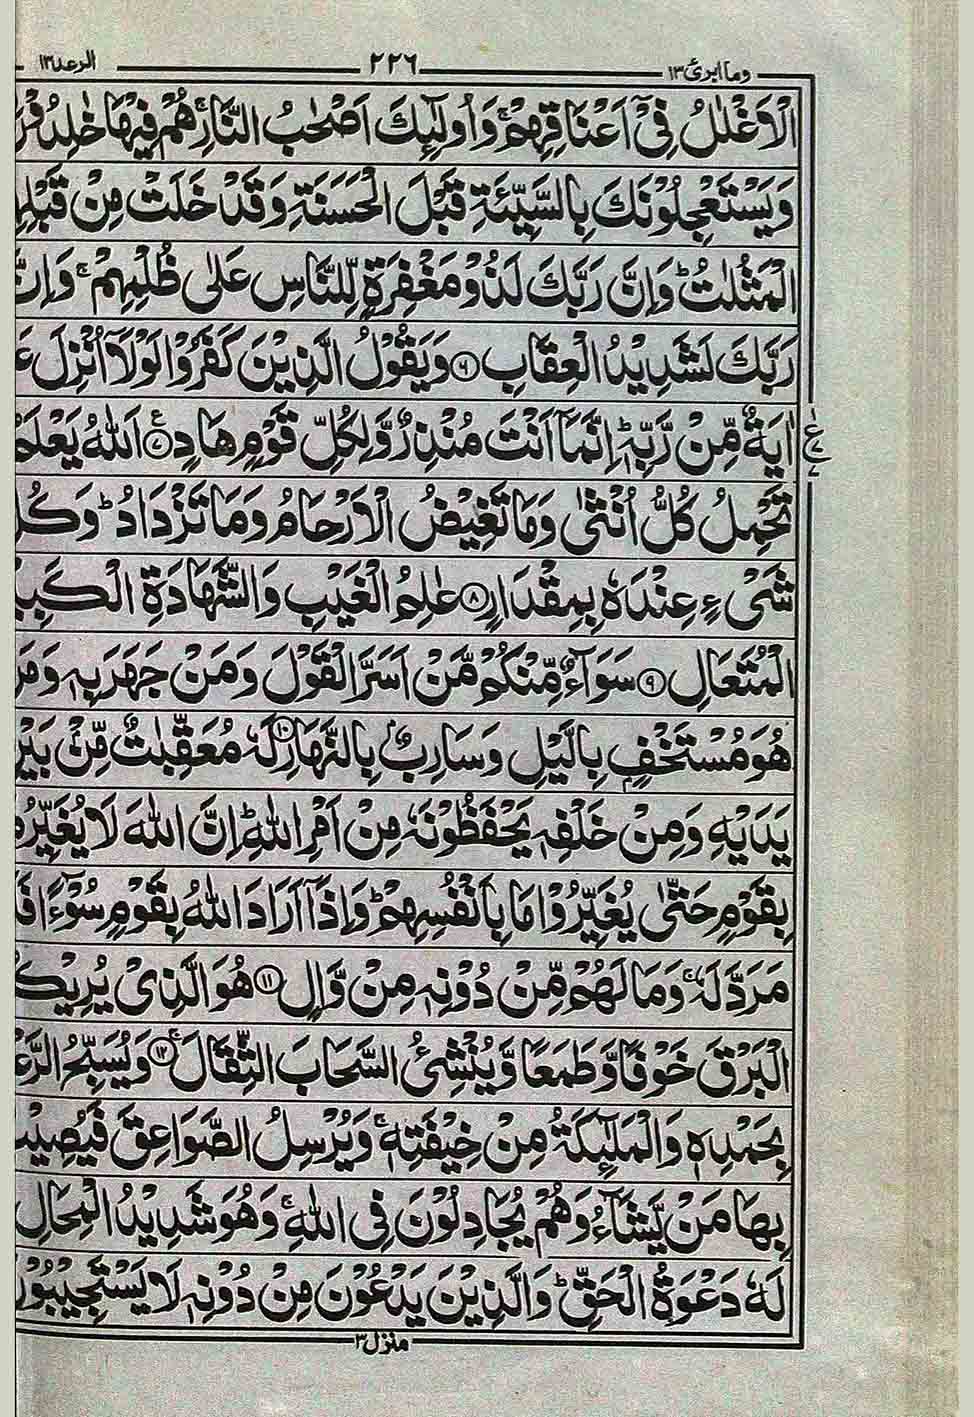 وما ابرئ ١٣ ٢٢٦ الرعد ١٣
الْاَغْلٰلُ فِیْۤ اَعْنَاقِهِمْ ۚ وَ اُولٰٓئِكَ اَصْحٰبُ النَّارِ ۚ هُمْ فِیْهَا
وَ یَسْتَعْجِلُوْنَكَ بِالسَّیِّئَةِ قَبْلَ الْحَسَنَةِ وَ قَدْ خَلَتْ مِنْ
الْمَثُلٰتُ ؕ وَ اِنَّ رَبَّكَ لَذُوْ مَغْفِرَةٍ لِّلنَّاسِ عَلٰی ظُلْمِهِمْ ۚ
رَبَّكَ لَشَدِیْدُ الْعِقَابِ ۶ وَ یَقُوْلُ الَّذِیْنَ كَفَرُوْا لَوْلَاۤ اُنْزِلَ
اٰیَةٌ مِّنْ رَّبِّهٖ ؕ اِنَّمَاۤ اَنْتَ مُنْذِرٌ وَّ لِكُلِّ قَوْمٍ هَادٍ ۷ اَللّٰهُ یَعْلَمُ
تَحْمِلُ كُلُّ اُنْثٰی وَ مَا تَغِیْضُ الْاَرْحَامُ وَ مَا تَزْدَادُ ؕ
شَیْءٍ عِنْدَهٗ بِمِقْدَارٍ ۸ عٰلِمُ الْغَیْبِ وَ الشَّهَادَةِ
الْمُتَعَالِ ۹ سَوَآءٌ مِّنْكُمْ مَّنْ اَسَرَّ الْقَوْلَ وَ مَنْ جَهَرَ بِهٖ
هُوَ مُسْتَخْفٍۭ بِالَّیْلِ وَ سَارِبٌۢ بِالنَّهَارِ ۱۰ لَهٗ مُعَقِّبٰتٌ مِّنْۢ
یَدَیْهِ وَ مِنْ خَلْفِهٖ یَحْفَظُوْنَهٗ مِنْ اَمْرِ اللّٰهِ ؕ اِنَّ اللّٰهَ لَا یُغَیِّرُ
بِقَوْمٍ حَتّٰی یُغَیِّرُوْا مَا بِاَنْفُسِهِمْ ؕ وَ اِذَاۤ اَرَادَ اللّٰهُ بِقَوْمٍ سُوْٓءًا
مَرَدَّ لَهٗ ۚ وَ مَا لَهُمْ مِّنْ دُوْنِهٖ مِنْ وَّالٍ ۱۱ هُوَ الَّذِیْ
الْبَرْقَ خَوْفًا وَّ طَمَعًا وَّ یُنْشِئُ السَّحَابَ الثِّقَالَ ۱۲ ۚ وَ یُسَبِّحُ
بِحَمْدِهٖ وَ الْمَلٰٓئِكَةُ مِنْ خِیْفَتِهٖ ۚ وَ یُرْسِلُ الصَّوَاعِقَ
بِهَا مَنْ یَّشَآءُ وَ هُمْ یُجَادِلُوْنَ فِی اللّٰهِ ۚ وَ هُوَ شَدِیْدُ الْمِحَالِ
لَهٗ دَعْوَةُ الْحَقِّ ؕ وَ الَّذِیْنَ یَدْعُوْنَ مِنْ دُوْنِهٖ لَا
منزل ٣